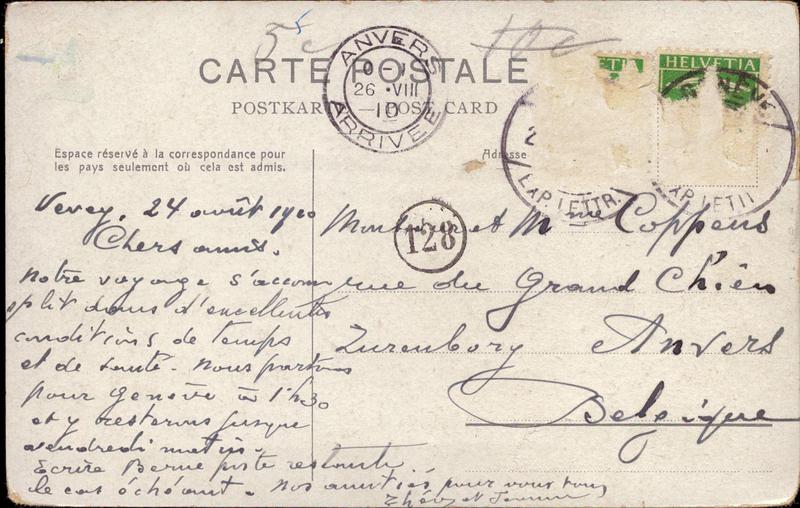 5c
10c
CARTE POSTALE
POSTKARTE — POST CARD
ANVERS
26 VIII
10
ARRIVÉE
HELVETIA
EXP. LETTR.
128
Espace réservé à la correspondance pour
les pays seulement où cela est admis.
Adresse
Vevey, 24 août 1910
Chers amis.
Notre voyage s'accom
plit dans d'excellentes
conditions de temps
et de santé. Nous partons
pour Genève à 1h30
et y resterons jusque
vendredi matin.
Ecrire Berne poste restante
le cas échéant. Nos amitiés pour vous tous
Monsieur et Mme Coppens
rue du Grand Chien
Zurenborg Anvers
Belgique